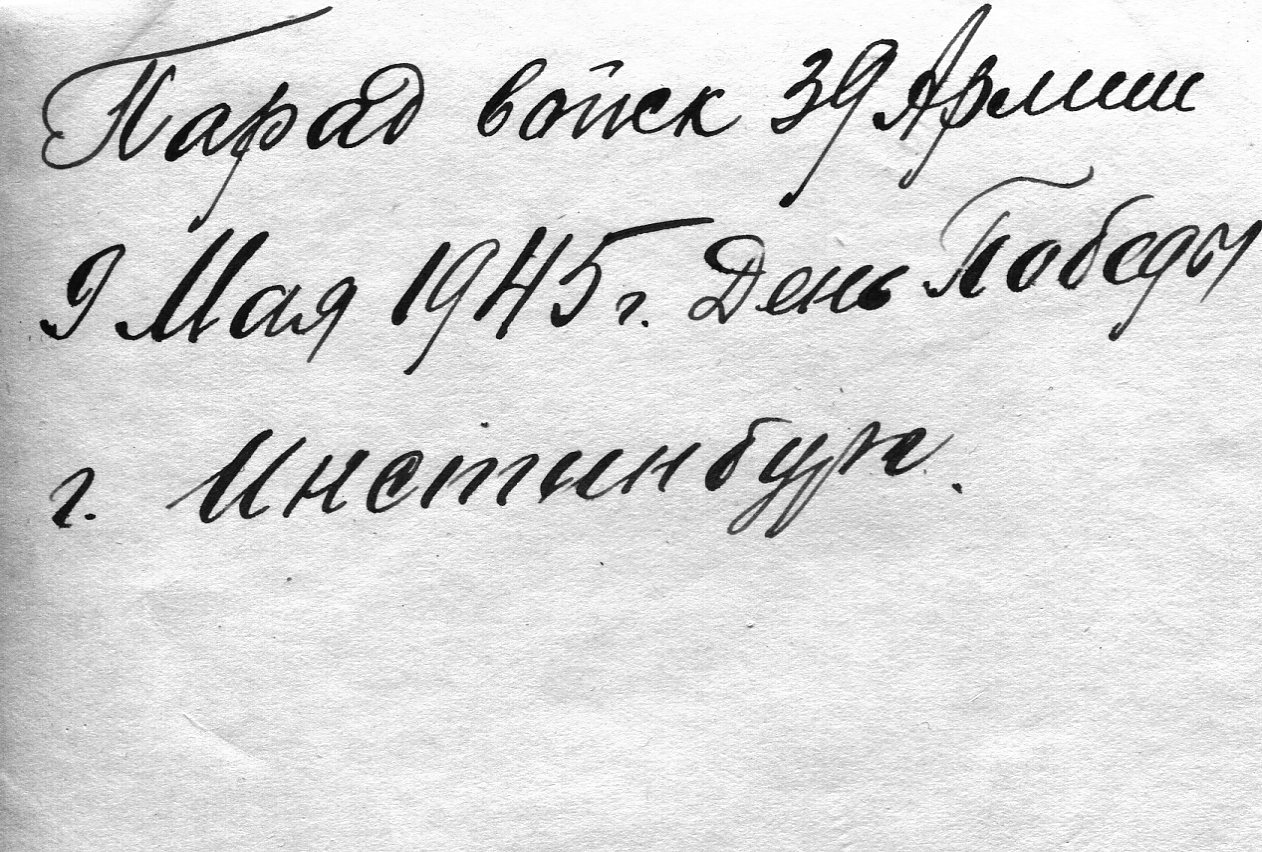 Парад войск 39 Армии
9 Мая 1945 г. День Победы
г. Инстинбург.